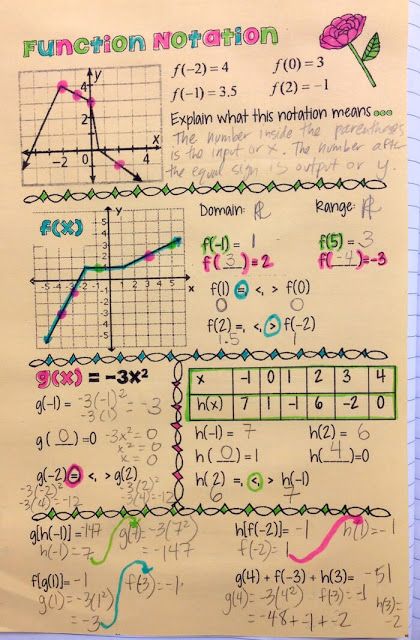 Function Notation
f(-2) = 4 f(0) = 3
f(-1) = 3.5 f(2) = -1
Explain what this notation means...
The number inside the parentheses
is the input or x. The number after
the equal sign is output or y.
y
4
2
x
-2 2 4
f(x)
Domain: ℝ Range: ℝ
f(-1) = 1 f(5) = 3
f( 3 ) = 2 f( -4 ) = -3
f(1) =, <, > f(0)
0 0
f(2) =, <, > f(-2)
1.5 1
y
x
-5 -4 -3 -2 1 2 3 4 5
g(x) = -3x²
g(-1) = -3(-1)²
-3(1) = -3
g( 0 )=0 -3x² = 0
x² = 0
x = 0
g(-2) =, <, > g(2)
-3(-2)² -3(2)²
-3(4) = -12 -3(4) = -12
x -1 0 1 2 3 4
h(x) 7 1 -1 6 -2 0
h(-1) = 7 h(2) = 6
h( 0 )=1 h( 4 )=0
h( 2) =, <, > h(-1)
6 7
g[h(-1)] = -147 g(7) = -3(7²)
h(-1) = 7 = -147
h[f(-2)] = -1 h(1) = -1
f(-2) = 1
f[g(1)] = -1 f(-3) = -1
g(1) = -3(1²)
= -3
g(4) + f(-3) + h(3) = -51
g(4) = -3(4²) f(-3) = -1 h(3) = -2
= -48 + -1 + -2